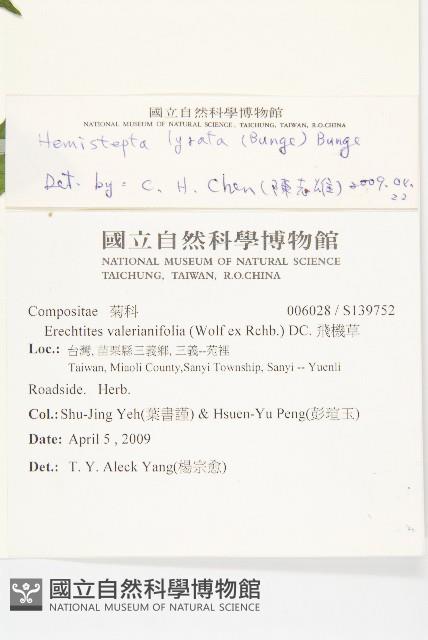 國立自然科學博物館
NATIONAL MUSEUM OF NATURAL SCIENCE, TAICHUNG, TAIWAN, R.O.CHINA
Hemistepta lyrata (Bunge) Bunge
Det. by: C. H. Chen (陳志雄) 2009.04.
22
國立自然科學博物館
NATIONAL MUSEUM OF NATURAL SCIENCE
TAICHUNG, TAIWAN, R.O.CHINA
Compositae 菊科 006028 / S139752
Erechtites valerianifolia (Wolf ex Rchb.) DC. 飛機草
Loc.: 台灣, 苗栗縣三義鄉, 三義--苑裡
Taiwan, Miaoli County,Sanyi Township, Sanyi -- Yuenli
Roadside. Herb.
Col.: Shu-Jing Yeh(葉書謹) & Hsuen-Yu Peng(彭瑄玉)
Date: April 5 , 2009
Det.: T. Y. Aleck Yang(楊宗愈)
國立自然科學博物館
NATIONAL MUSEUM OF NATURAL SCIENCE